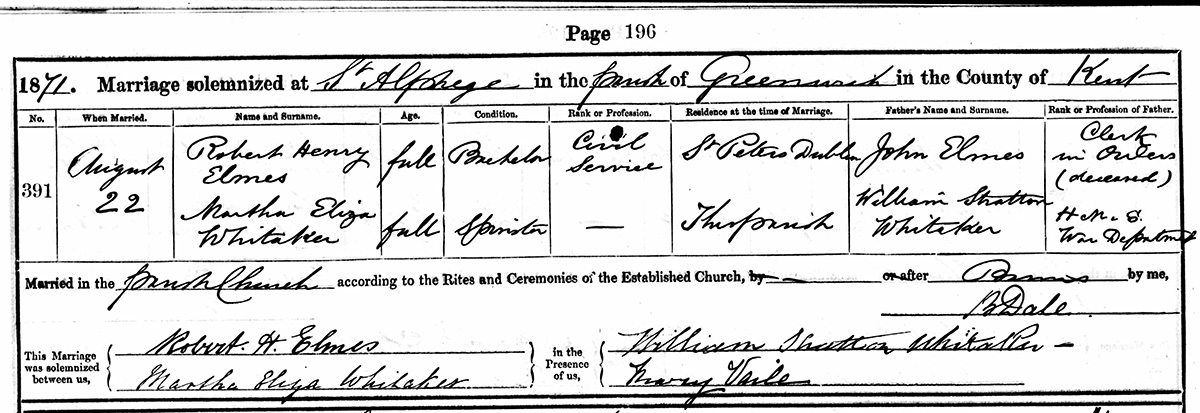 Page 196
1871. Marriage solemnized at St Alphege in the parish of Greenwich in the County of Kent
No. When Married. Name and Surname. Age. Condition. Rank or Profession. Residence at the time of Marriage. Father's Name and Surname. Rank or Profession of Father.
391 August 22 Robert Henry Elmes full Bachelor Civil Service St Peters Dublin John Elmes Clerk in Orders (deceased)
Martha Eliza Whitaker full Spinster — This parish William Stratton Whitaker H. M. S. War Department
Married in the parish Church according to the Rites and Ceremonies of the Established Church, by — or after Banns by me,
B Dale
This Marriage was solemnized between us, Robert. H. Elmes in the Presence of us, William Stratton Whitaker —
Martha Eliza Whitaker Vaile